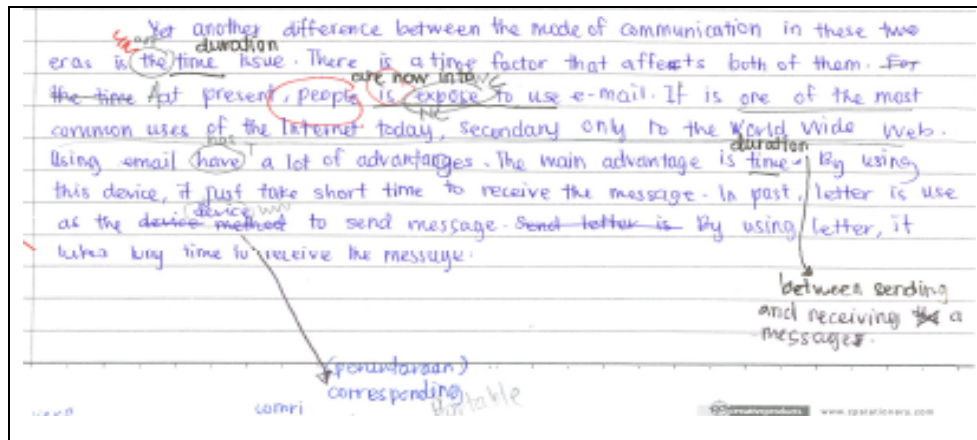 Yet another difference between the mode of communication in these two
duration
eras is the time issue. There is a time factor that affects both of them. For
are now into
the time At at present, people is expose to use e-mail. If is one of the most
common uses of the Internet today, secondary only to the World Wide Web.
has
duration
Using email have a lot of advantages. The main advantage is time. By using
this device, it just take short time to receive the message. In past, letter is use
device
as the device method to send message. Send letter is By using letter, it
takes long time to receive the message.
between sending
and receiving a
messages.
corresponding
suitable
comri